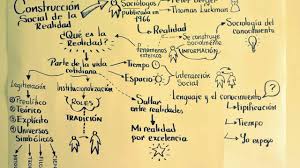 Construcción
Social de la
Realidad
Sociólogos
publicado en
1966
Peter Berger
Thomas Luckmann
Sociología del
conocimiento
Realidad
Se construye
Socialmente
¿Qué es la
Realidad?
fenómenos
externos
INFORMACIÓN
Parte de la vida
cotidiana
Tiempo
Espacio
Interacción
Social
Legitimación
Institucionalización
Preteórico
Teórico
Explícito
Universos
Simbólicos
ROLES
TRADICIÓN
Saltar
entre realidades
Mi realidad
por excelencia
Lenguaje y el conocimiento
Tipificación
Tiempo
Yo espejo